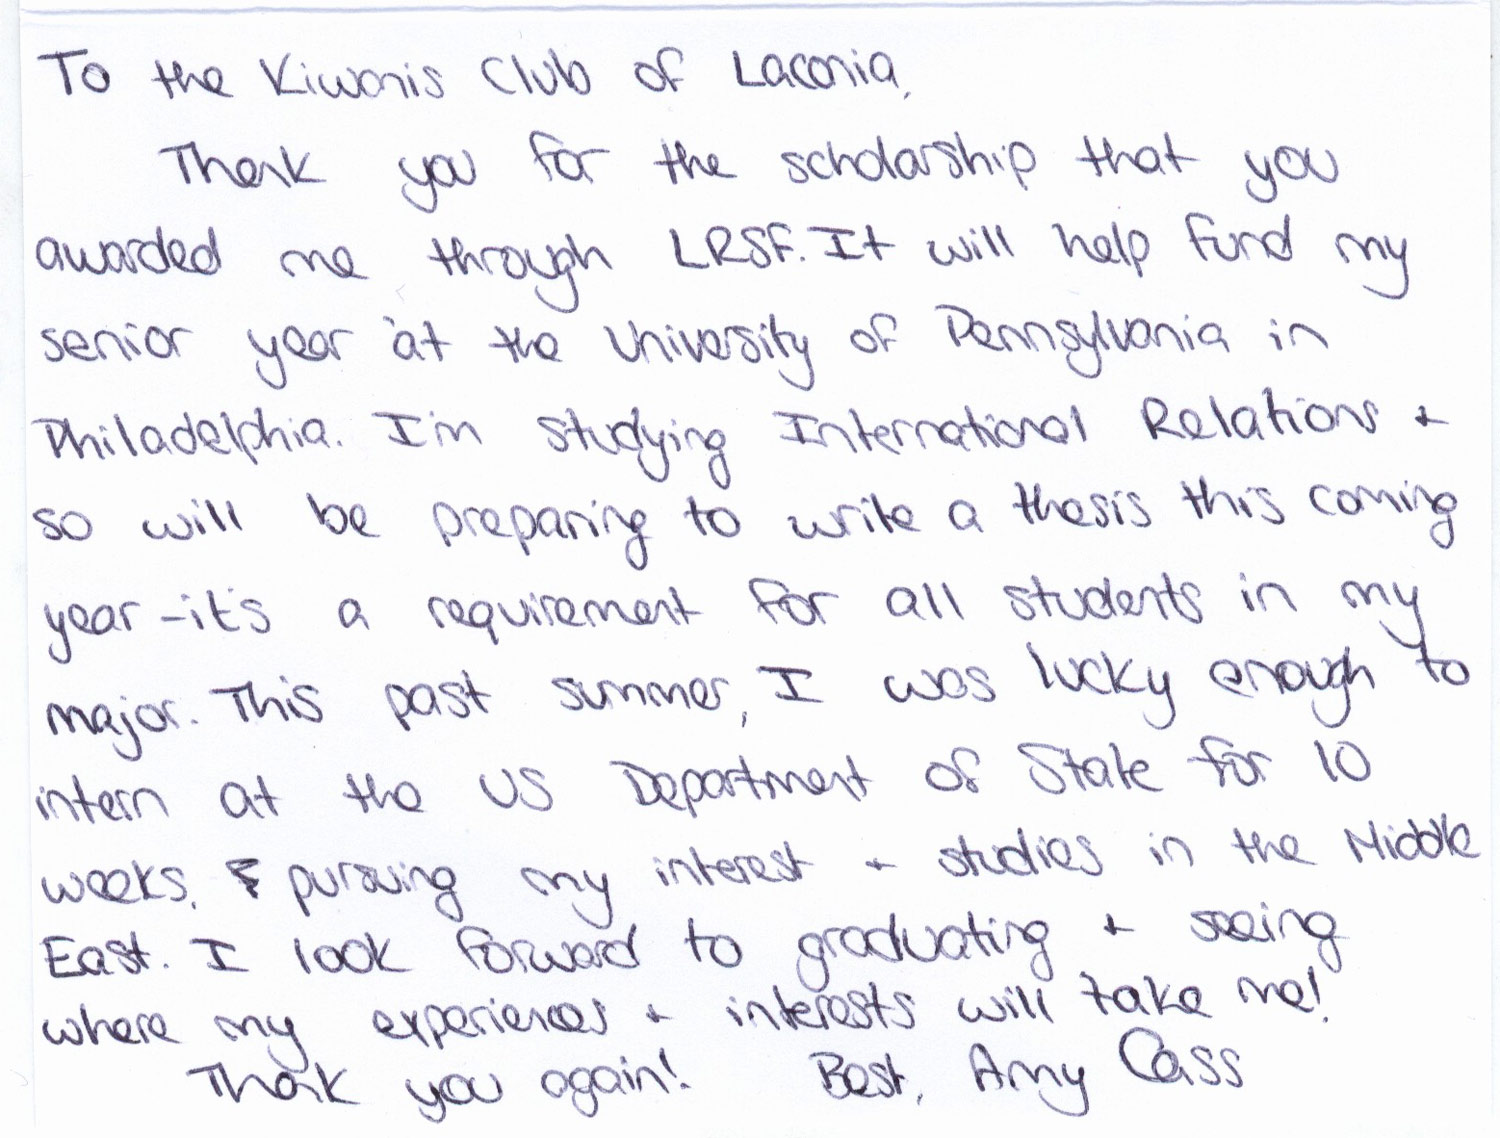 To the Kiwanis Club of Laconia,
Thank you for the scholarship that you
awarded me through LRSF. It will help fund my
senior year at the University of Pennsylvania in
Philadelphia. I'm studying International Relations +
so will be preparing to write a thesis this coming
year - it's a requirement for all students in my
major. This past summer, I was lucky enough to
intern at the US Department of State for 10
weeks, pursuing my interest + studies in the Middle
East. I look forward to graduating + seeing
where my experiences + interests will take me!
Thank you again! Best, Amy Cass